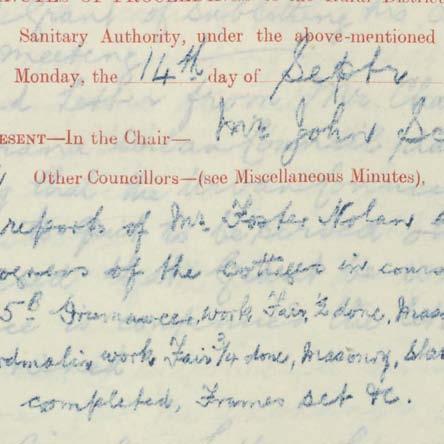 Sanitary Authority, under the above-mentioned
Monday, the 14th day of Septr
ESENT—In the Chair— Mr John
Other Councillors—(see Miscellaneous Minutes),
reports of Mr Foster Nolan
ogress of the Cottages in cours
5 B Drumaweer, work Fair, ½ done, Mason
rdmalin work Fair ¾ done, Masonry, Slat
completed, Frames set &c.